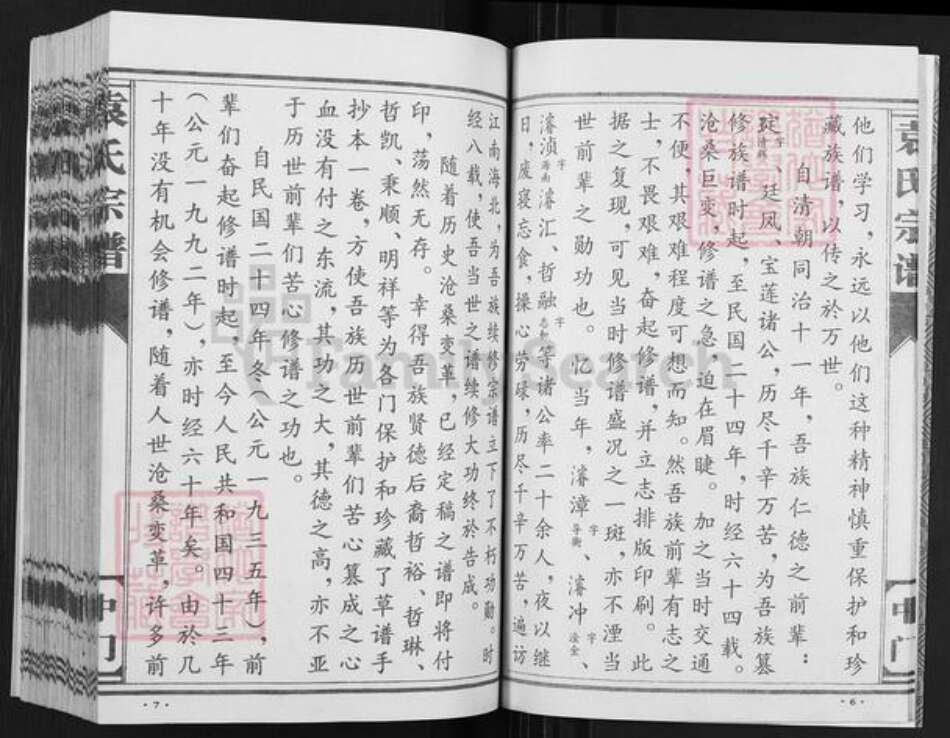 他们学习，永远以他们这种精神慎重保护和珍
藏族谱，以传之於万世。
自清朝同治十一年，吾族仁德之前辈：
廷凤、宝莲诸公，历尽千辛万苦，为吾族篡
修族谱时起，至民国二十四年，时经六十四载。
沧桑巨变，修谱之急，迫在眉睫。加之当时交通
不便，其艰难程度可想而知。然吾族前辈有志之
士，不畏艰难，奋起修谱，并立志排版印刷。此
据之复现，可见当时修谱盛况之一斑，亦不湮当
世前辈之勋功也。忆当年，濬漳字导衡、濬冲字浚全、
濬浈字海南、濬汇、哲融字志和等诸公率二十余人，夜以继
日，废寝忘食，操心劳碌，历尽千辛万苦，遍访
江南海北，为吾族续修宗谱立下了不朽功勋。时
经八载，使吾当世之谱续修大功终於告成。
随着历史沧桑变革，已经定稿之谱即将付
印，荡然无存。幸得吾族贤德后裔哲裕、哲琳、
哲凯、秉顺、明祥等为各门保护和珍藏了草谱手
抄本一卷，方使吾族历世前辈们苦心篡成之心
血没有付之东流，其功之大，其德之高，亦不亚
于历世前辈们苦心修谱之功也。
自民国二十四年冬（公元一九三五年），前
辈们奋起修谱时起，至今人民共和国四十二年
（公元一九九二年），亦时经六十年矣。由於几
十年没有机会修谱，随着人世沧桑变革，许多前
袁氏宗谱
中门
·6·
袁氏宗谱
中门
·7·
FamilySearch